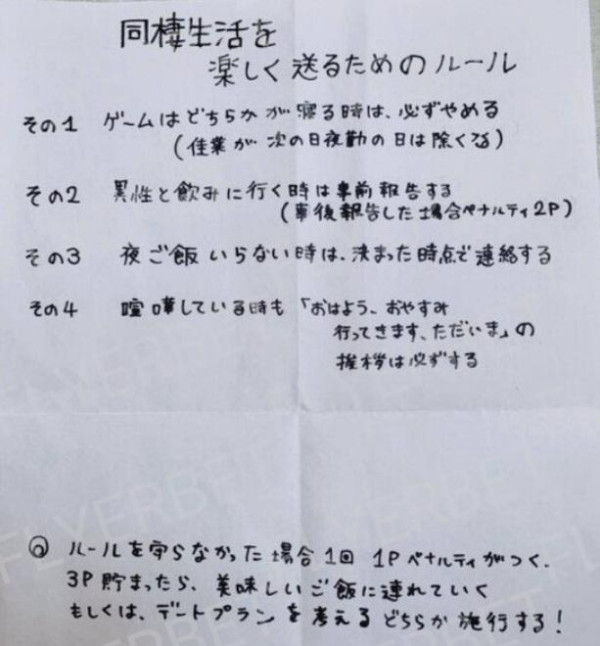 同棲生活を
楽しく送るためのルール
その1 ゲームはどちらかが寝る時は、必ずやめる
(佳菜が次の日夜勤の日は除くる)
その2 異性と飲みに行く時は事前報告する
(事後報告した場合ペナルティ2P)
その3 夜ご飯いらない時は、決まった時点で連絡する
その4 喧嘩している時も「おはよう、おやすみ
行ってきます、ただいま」の
挨拶は必ずする
ルールを守らなかった場合1回 1Pペナルティがつく、
3P貯まったら、美味しいご飯に連れていく
もしくは、デートプランを考えるどちらか施行する!
FLYERBET